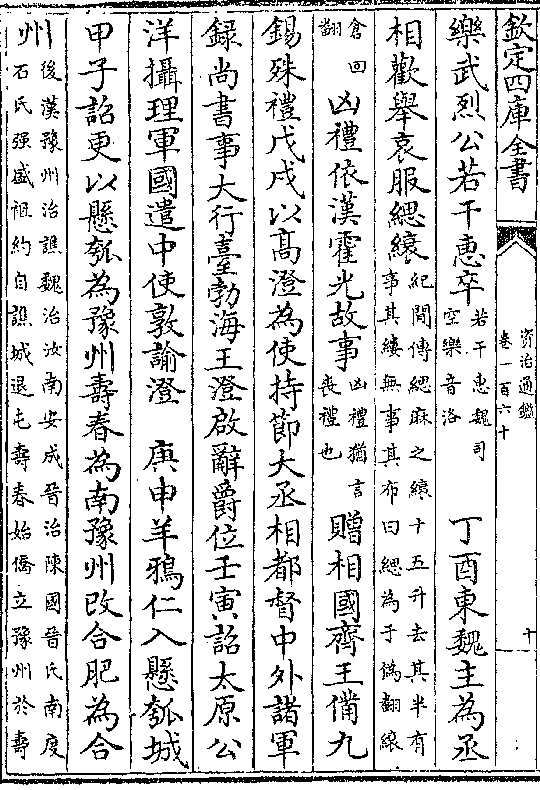 欽定四庫全書
資治通鑑
卷一百六十
十
樂武烈公若干惠卒
若干惠魏司
空樂音洛
丁酉東魏主為丞
相歡舉哀服緦縗
紀閒傳緦麻之縗十五升去其半有
事其縷無事其布曰緦為于偽翻縗
倉回
翻
凶禮依漢霍光故事
凶禮猶言
喪禮也
贈相國齊王備九
錫殊禮戊戌以高澄為使持節大丞相都督中外諸軍
録尚書事大行臺勃海王澄啟辭爵位壬寅詔太原公
洋攝理軍國遣中使敦諭澄　庚申羊鴉仁入懸瓠城
甲子詔更以懸瓠為豫州壽春為南豫州改合肥為合
州
後漢豫州治譙魏治汝南安成晉治陳國晉氏南度
石氏强盛祖約自譙城退屯壽春始僑立豫州於壽